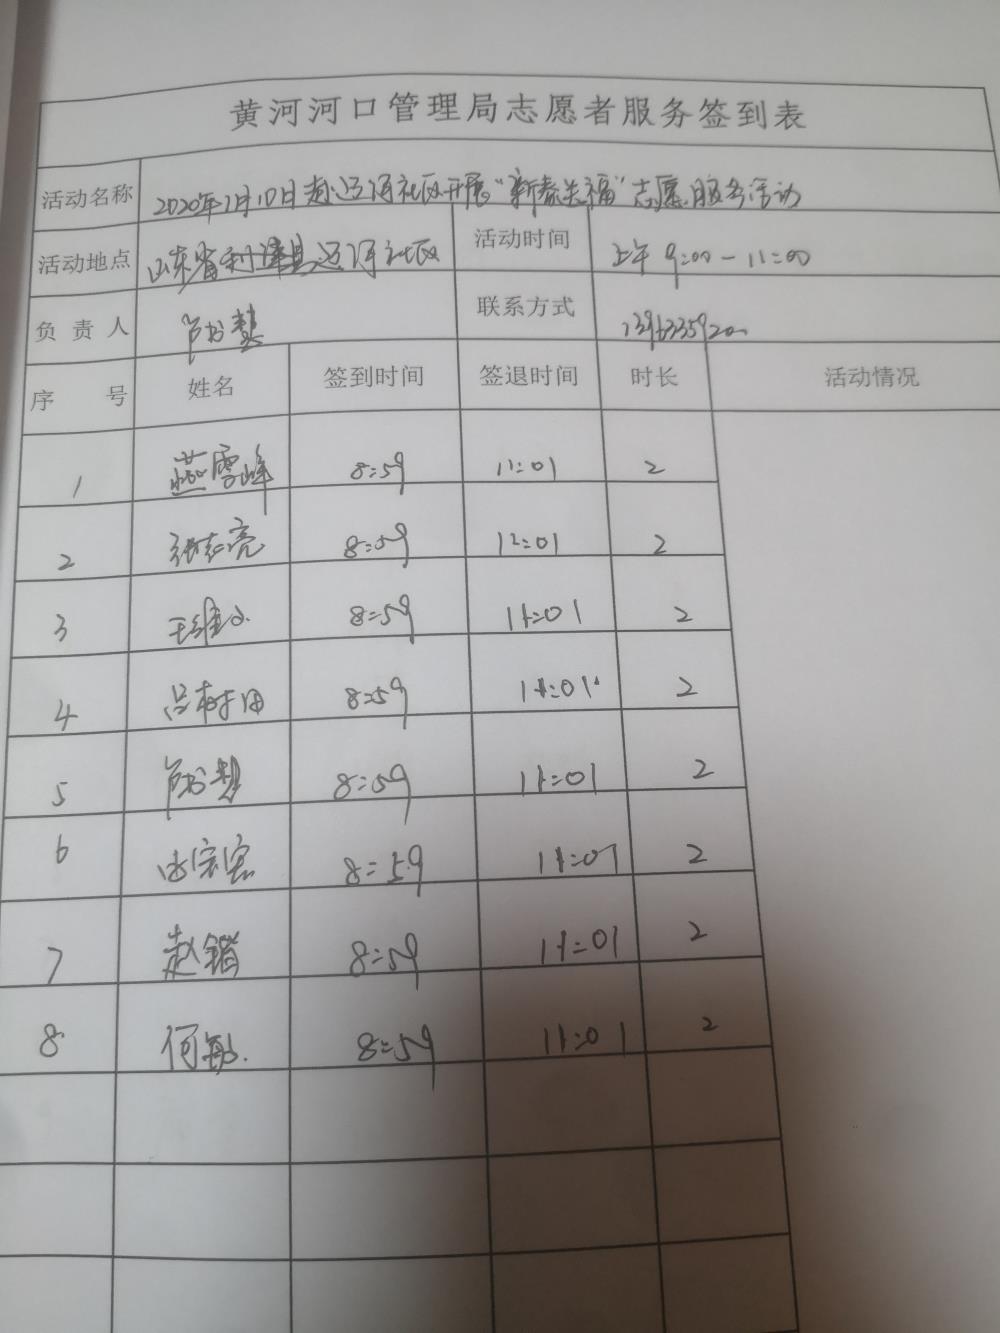 黄河河口管理局志愿者服务签到表
活动名称 2020年1月10日赴近河社区开展“新春送福”志愿服务活动
活动地点 山东省利津县近河社区 活动时间 上午 9:00-11:00
负责人 联系方式
序号 姓名 签到时间 签退时间 时长 活动情况
1 燕雪峰 8:59 11:01 2
2 张志亮 8:59 11:01 2
3 8:59 11:01 2
4 吕树田 8:59 11:01 2
5 8:59 11:01 2
6 8:59 11:01 2
7 赵锴 8:59 11:01 2
8 何敏 8:59 11:01 2